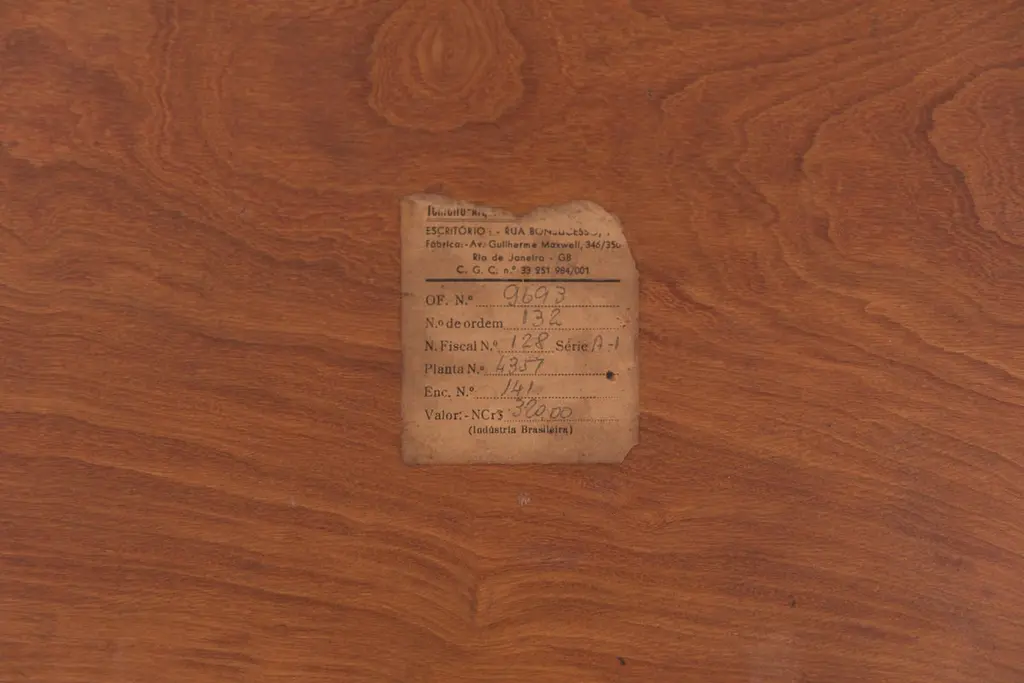 ESCRITÓRIO: - RUA BONSUCESSO,
Fábrica:- Av. Guilherme Maxwell, 346/350
Rio de Janeiro - GB
C. G. C. n.º 33 951 984/001
OF. N.º 9693
N.o de ordem 132
N. Fiscal N.º 128 Série A-1
Planta N.º 4357
Enc. N.º 141
Valor:- NCr$ 320,00
(Indústria Brasileira)